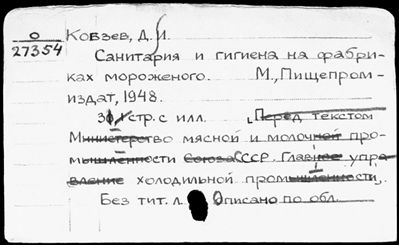 О
27354
Ковзев, Д.И.
Санитария и гигиена на фабри-
ках мороженого. М., Пищепром-
издат, 1948.
стр. с илл. Перед текстом
Министерство мясной и молочной про-
мышленности Союза ССР. Главное упра-
вление холодильной промышленности.
Без тит. л. Описано по обл.